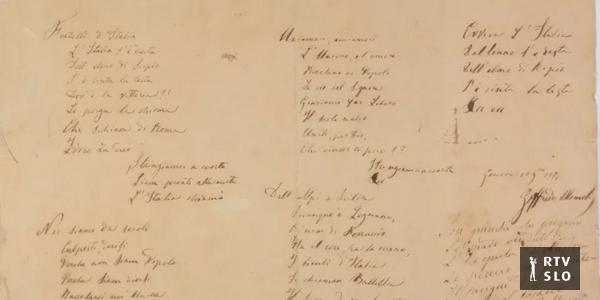 Fratelli d'Italia
L'Italia s'è desta
Dell'elmo di Scipio
S'è cinta la testa
Dov'è la vittoria??
Le porga la chioma
Che schiava di Roma
Iddio la creò
Stringiamci a coorte
Siam pronti alla morte
L'Italia chiamò
Noi siamo da secoli
Calpesti derisi
Perché non siam Popolo
Perché siam divisi
Raccolgaci un'unica
Uniamoci, amiamoci
L'Unione, e l'amore
Rivelano ai Popoli
Le vie del Signore
Giuriamo far Libero
Il suolo natio
Uniti, per Dio,
Chi vincer ci può??
Stringiamci a coorte
Dall'Alpi a Sicilia
Dovunque è Legnano,
Ogn'uom di Ferruccio
Ha il core, ha la mano,
I bimbi d'Italia
Si chiaman Balilla
Evviva l'Italia
Dal sonno s'è desta
Dell'elmo di Scipio
S'è cinta la testa
Goffredo Mameli
RTV
SLO